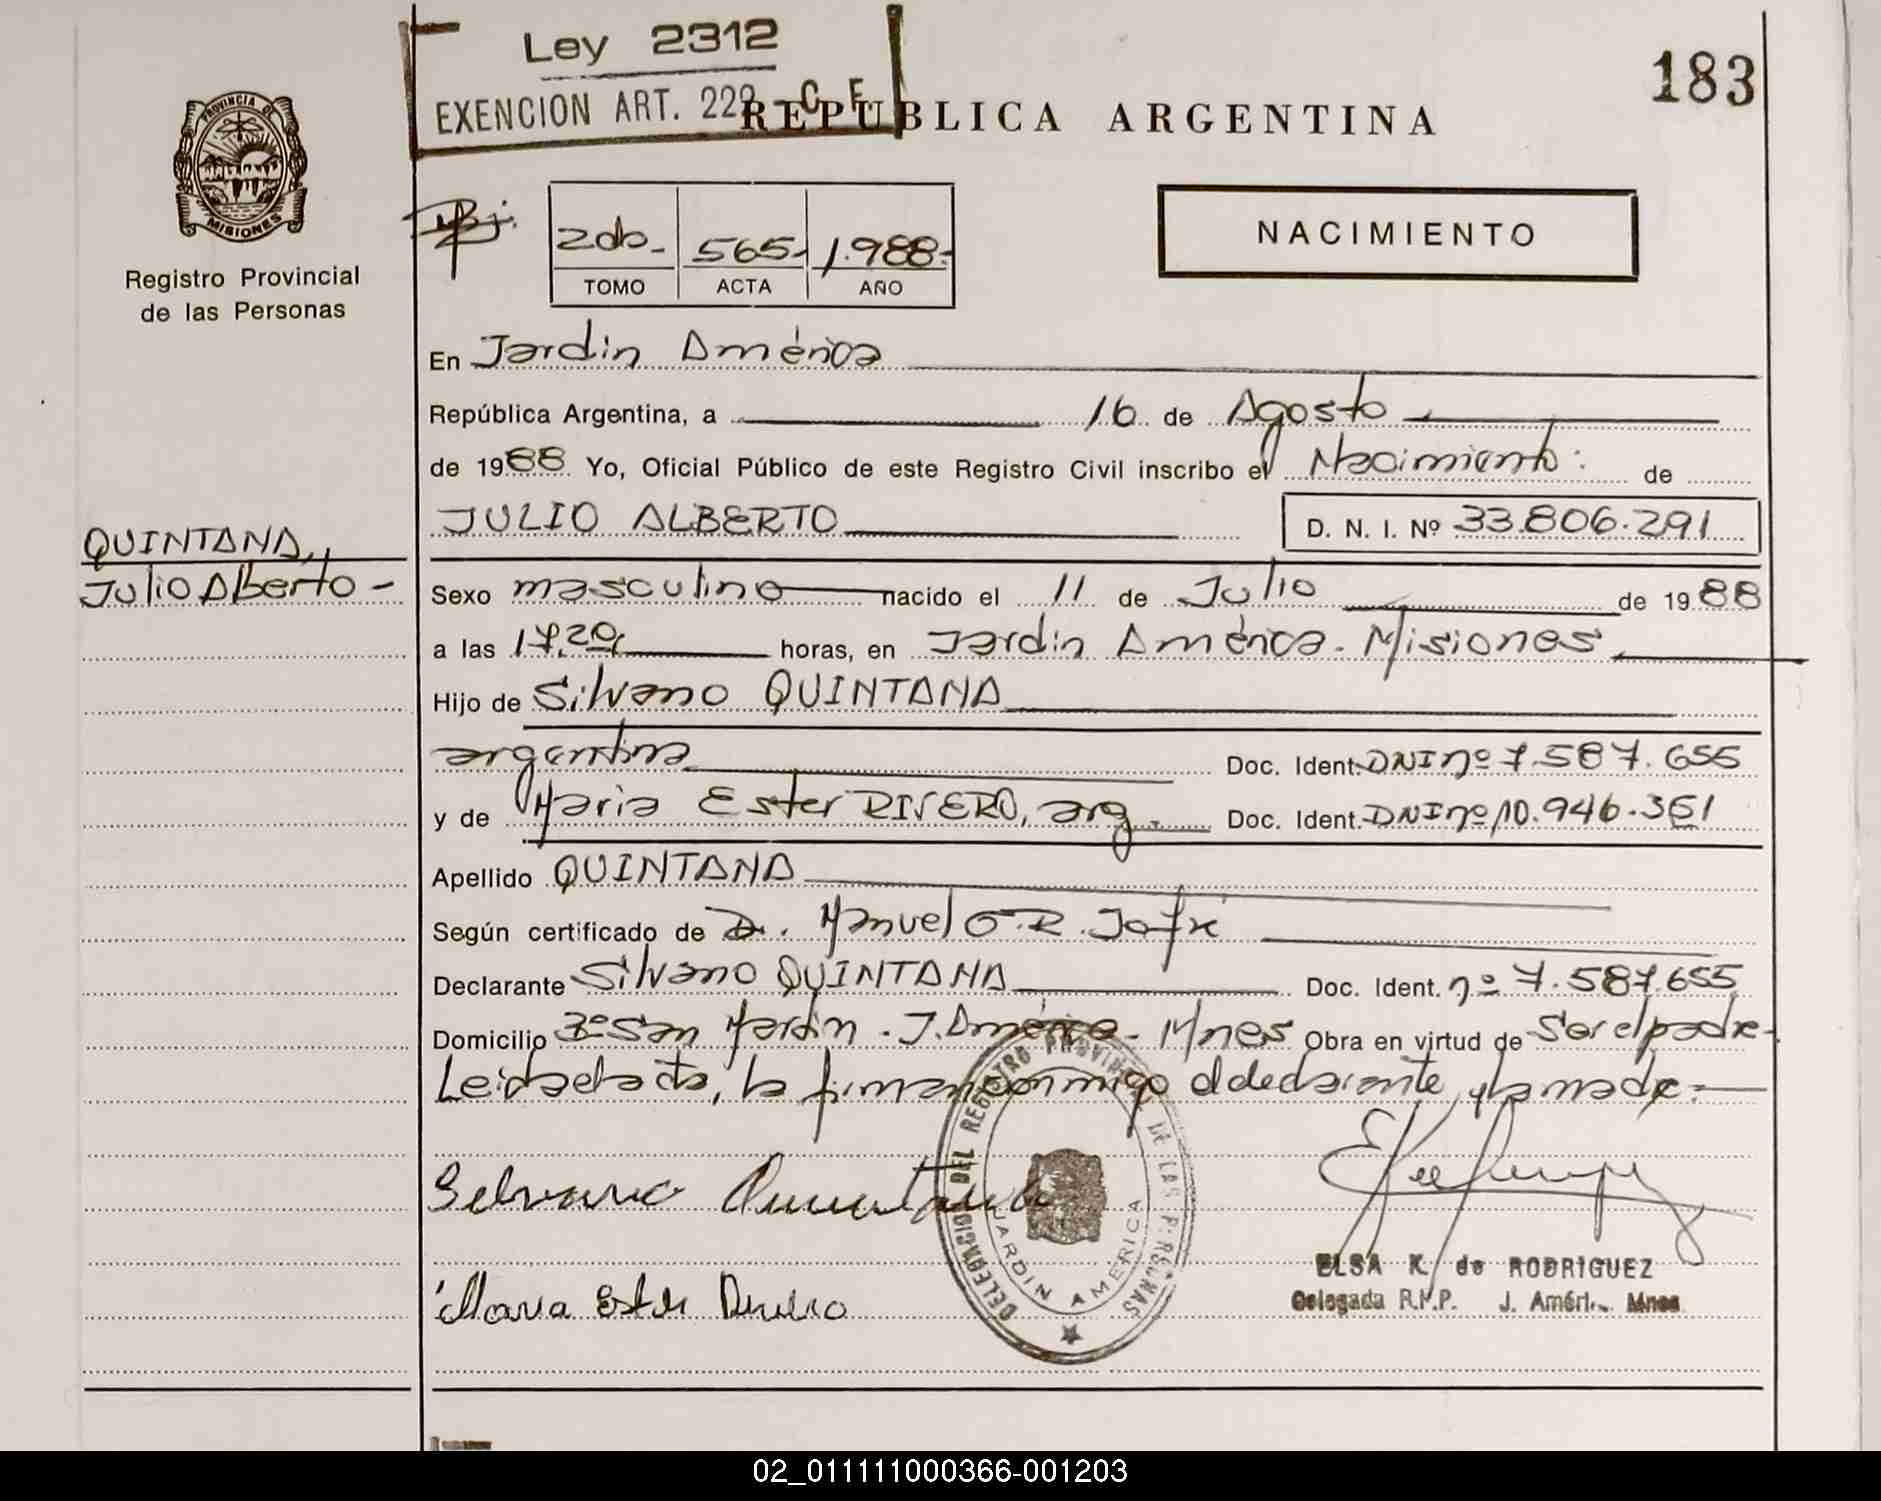 Ley 2312
EXENCION ART. 229 - C. F.
REPUBLICA ARGENTINA
183
PROVINCIA DE
MISIONES
Registro Provincial
de las Personas
2do - 565 - 1.988 -
TOMO ACTA AÑO
NACIMIENTO
En Jardin América
República Argentina, a 16 de Agosto
de 1988 Yo, Oficial Público de este Registro Civil inscribo el Nacimiento: de
JULIO ALBERTO D. N. I. Nº 33.806.291
QUINTANA,
Julio Alberto -
Sexo masculino nacido el 11 de Julio de 1988
a las 17,20, horas, en Jardin América - Misiones
Hijo de Silvano QUINTANA
argentino Doc. Ident. DNI nº 7.587.655
y de Maria Ester RIVERO, arg. Doc. Ident. DNI nº 10.946.361
Apellido QUINTANA
Según certificado de Dr. Manuel O.R. Jofré
Declarante Silvano QUINTANA Doc. Ident. nº 7.587.655
Domicilio Bº San Martin - J. América - Mnes Obra en virtud de Ser el padre -
Leida el acta, la firman conmigo el declarante y la madre: -
Silvano Quintana
Maria Ester Rivero
DELEGACION DEL REGISTRO PROVINCIAL DE LAS PERSONAS
JARDIN AMERICA
ELSA K. de RODRIGUEZ
Delegada R.P.P. J. Améri. Mnes
02_011111000366-001203